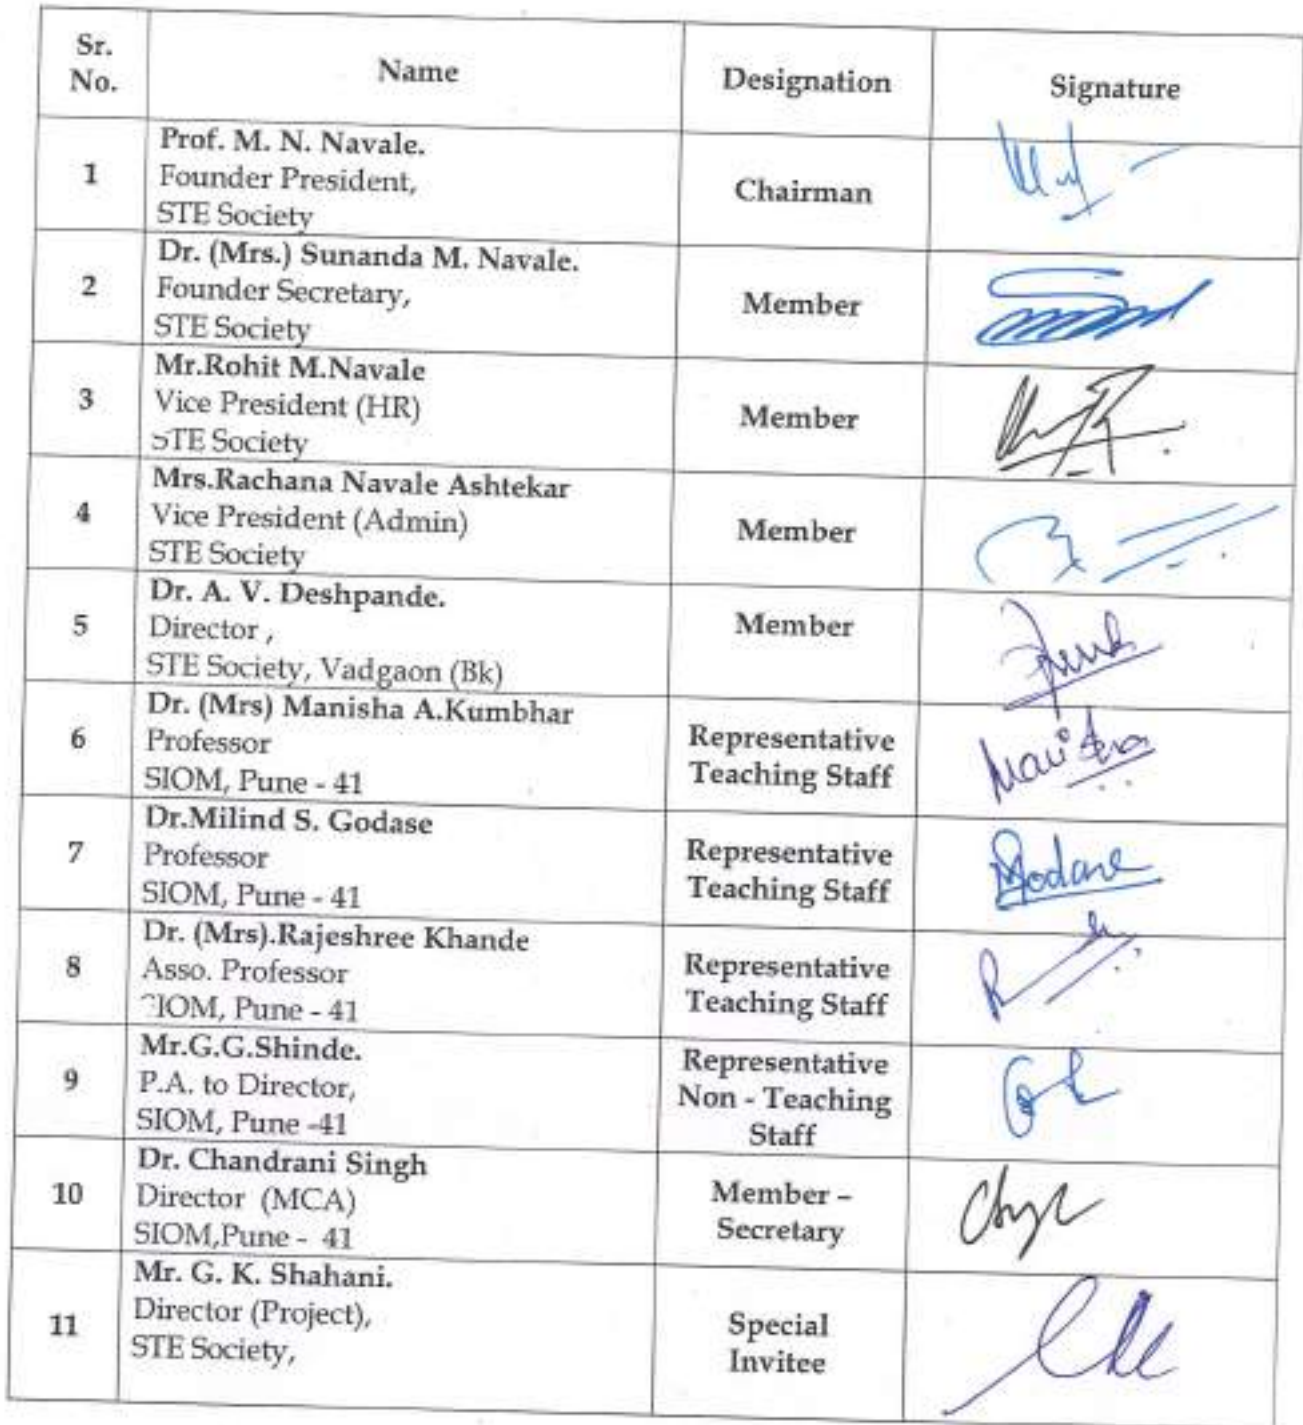 Sr. No.
Name
Designation
Signature
1
Prof. M. N. Navale.
Founder President,
STE Society
Chairman
2
Dr. (Mrs.) Sunanda M. Navale.
Founder Secretary,
STE Society
Member
3
Mr.Rohit M.Navale
Vice President (HR)
STE Society
Member
4
Mrs.Rachana Navale Ashtekar
Vice President (Admin)
STE Society
Member
5
Dr. A. V. Deshpande.
Director ,
STE Society, Vadgaon (Bk)
Member
6
Dr. (Mrs) Manisha A.Kumbhar
Professor
SIOM, Pune - 41
Representative
Teaching Staff
Manisha
7
Dr.Milind S. Godase
Professor
SIOM, Pune - 41
Representative
Teaching Staff
8
Dr. (Mrs).Rajeshree Khande
Asso. Professor
SIOM, Pune - 41
Representative
Teaching Staff
9
Mr.G.G.Shinde.
P.A. to Director,
SIOM, Pune -41
Representative
Non - Teaching
Staff
10
Dr. Chandrani Singh
Director (MCA)
SIOM,Pune - 41
Member –
Secretary
11
Mr. G. K. Shahani.
Director (Project),
STE Society,
Special
Invitee